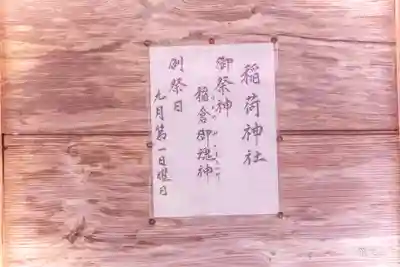 稲荷神社
御祭神
稲倉御魂神
例祭日
九月第一日曜日